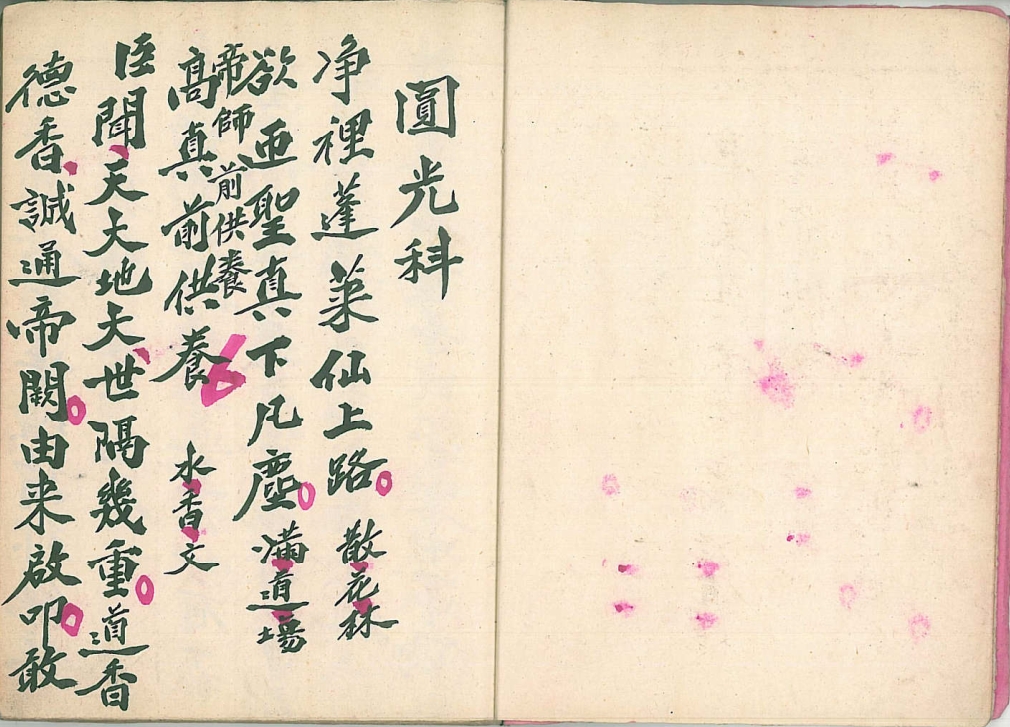 圓光科
净裡蓬萊仙上路 散花林
欲迊聖真下凡塵 滿道場
帝師前供養
高真前供養 水香文
臣聞天大地大世隔幾重道香
德香誠通帝闕由来啟叩敢